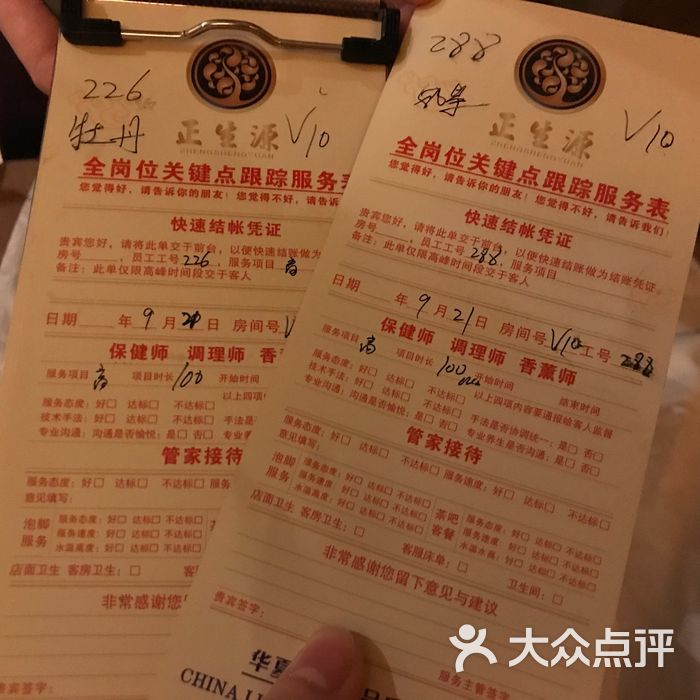 226
牡丹
正生源
V10
ZHENGSHENGYUAN
全岗位关键点跟踪服务表
您觉得好,请告诉你的朋友!您觉得不好,请告诉
快速结帐凭证
贵宾您好,请将此单交于前台,以便快速结账做为
房号____,员工工号226,服务项目 高
备注:此单仅限高峰时间段交于客人
日期 年 9 月 日 房间号 V
保健师 调理师 香
服务项目 高 项目时长 100 开始时间
以上四项
服务态度:好□ 达标□ 不达标□
技术手法:好□ 达标□ 不达标□ 手法是
专业沟通:沟通是否愉悦:是□ 否□ 专业
管家接待
服务态度:好□ 达标□ 不达标□ 服务
意见填写:
泡脚服务
服务态度:好□ 达标□ 不达标□
服务速度:好□ 达标□ 不达标□
水温高度:好□ 达标□ 不达标□
店面卫生 客房卫生:□
非常感谢您
贵宾签字:
288
V10
正生源
ZHENGSHENGYUAN
全岗位关键点跟踪服务表
您觉得好,请告诉你的朋友!您觉得不好,请告诉我们!
快速结帐凭证
贵宾您好,请将此单交于前台,以便快速结账做为结账凭证
房号____,员工工号288,服务项目
备注:此单仅限高峰时间段交于客人
日期 年 9 月 21 日 房间号 V10 工号 288
保健师 调理师 香薰师
服务项目 高 项目时长 100 开始时间 结束时间
以上四项内容要通报给客人监督
服务态度:好□ 达标□ 不达标□
技术手法:好□ 达标□ 不达标□ 手法是否协调统一:是□ 否□
专业沟通:沟通是否愉悦:是□ 否□ 专业养生是否沟通:是□ 否□
管家接待
服务态度:好□ 达标□ 不达标□ 服务速度:好□ 达标□ 不达标□
意见填写:
泡脚服务
服务态度:好□ 达标□ 不达标□
服务速度:好□ 达标□ 不达标□
水温高度:好□ 达标□ 不达标□
茶吧客餐
服务态度:好□ 达标□ 不达标□
服务速度:好□ 达标□ 不达标□
店面卫生 客房卫生:□ 客服床单:□ 卫生间:□
非常感谢您留下意见与建议
贵宾签字: 服务主管签字:
华夏
CHINA LI
大众点评